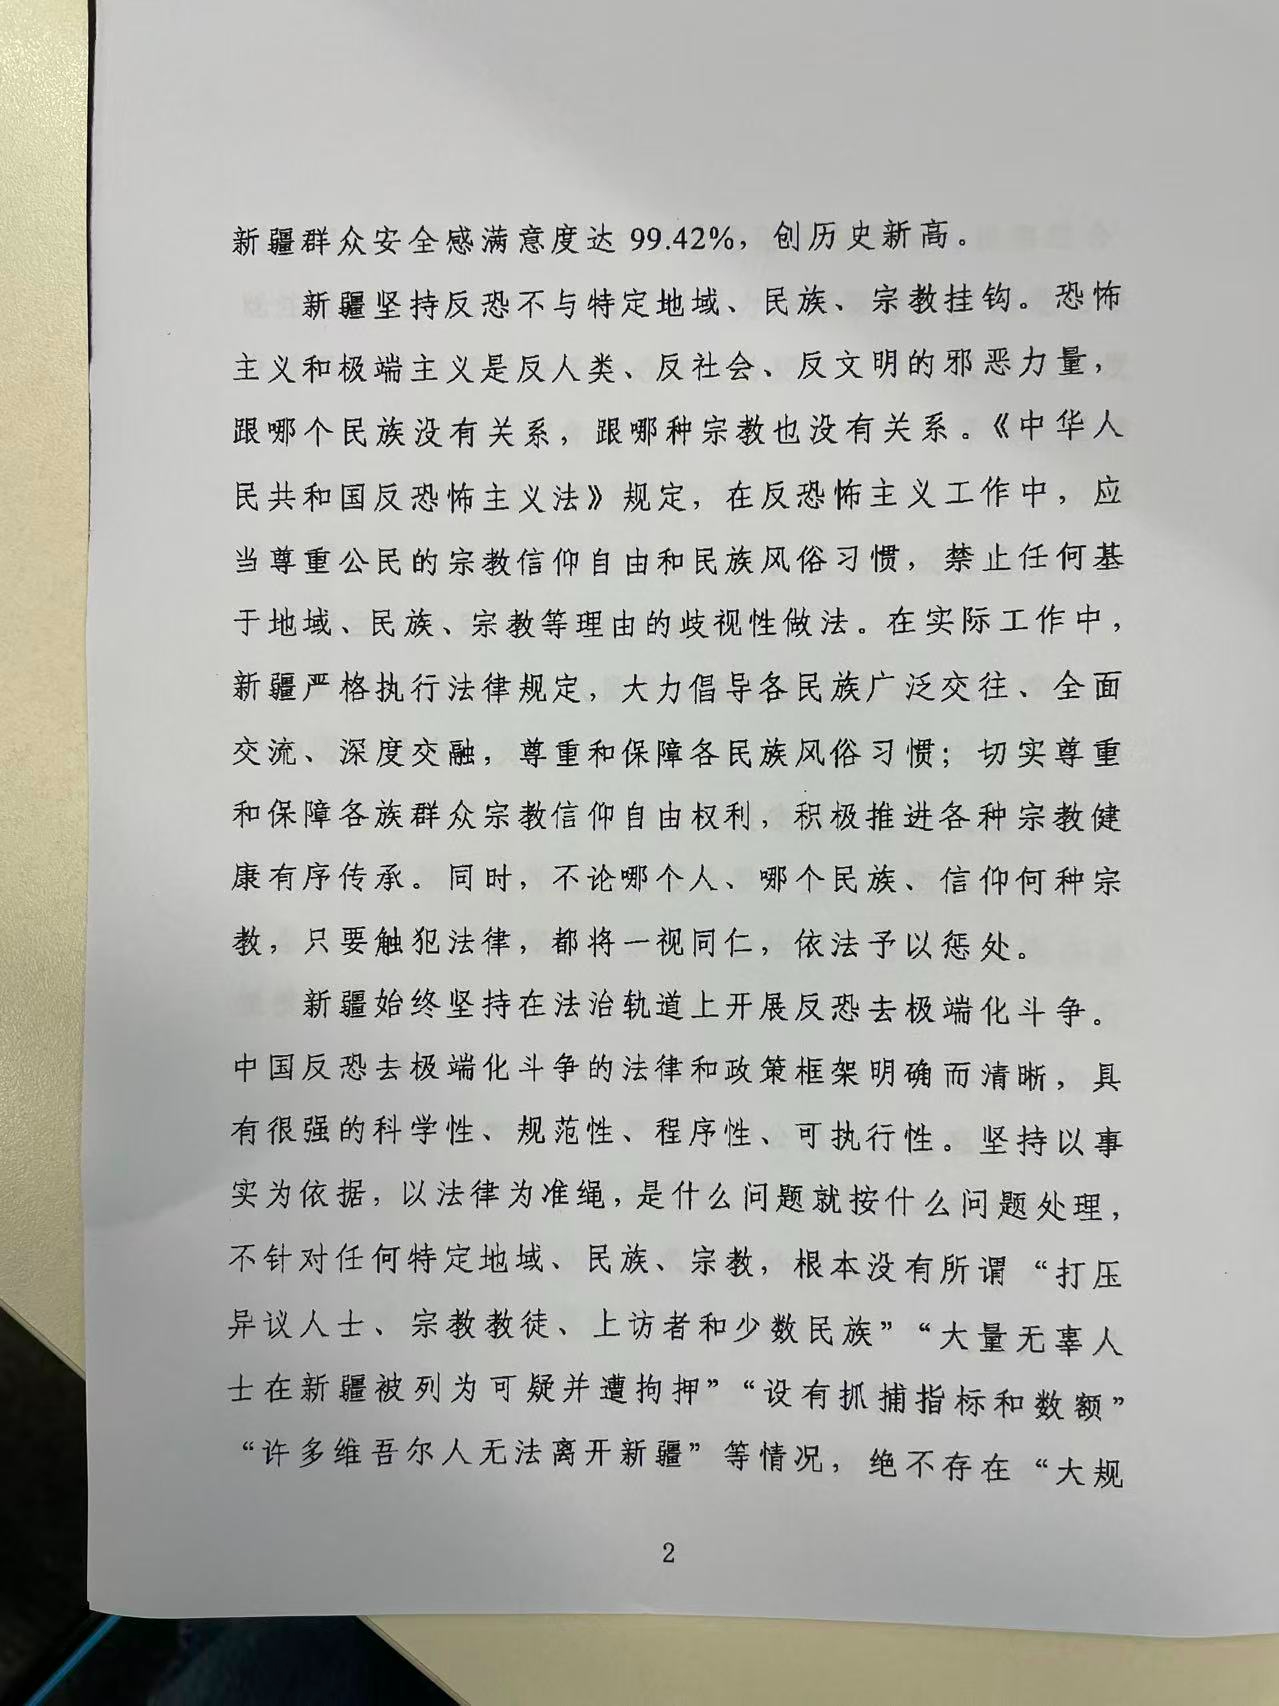 新疆群众安全感满意度达 99.42%，创历史新高。
新疆坚持反恐不与特定地域、民族、宗教挂钩。恐怖
主义和极端主义是反人类、反社会、反文明的邪恶力量，
跟哪个民族没有关系，跟哪种宗教也没有关系。《中华人
民共和国反恐怖主义法》规定，在反恐怖主义工作中，应
当尊重公民的宗教信仰自由和民族风俗习惯，禁止任何基
于地域、民族、宗教等理由的歧视性做法。在实际工作中，
新疆严格执行法律规定，大力倡导各民族广泛交往、全面
交流、深度交融，尊重和保障各民族风俗习惯；切实尊重
和保障各族群众宗教信仰自由权利，积极推进各种宗教健
康有序传承。同时，不论哪个人、哪个民族、信仰何种宗
教，只要触犯法律，都将一视同仁，依法予以惩处。
新疆始终坚持在法治轨道上开展反恐去极端化斗争。
中国反恐去极端化斗争的法律和政策框架明确而清晰，具
有很强的科学性、规范性、程序性、可执行性。坚持以事
实为依据，以法律为准绳，是什么问题就按什么问题处理，
不针对任何特定地域、民族、宗教，根本没有所谓“打压
异议人士、宗教教徒、上访者和少数民族”“大量无辜人
士在新疆被列为可疑并遭拘押”“设有抓捕指标和数额”
“许多维吾尔人无法离开新疆”等情况，绝不存在“大规
2